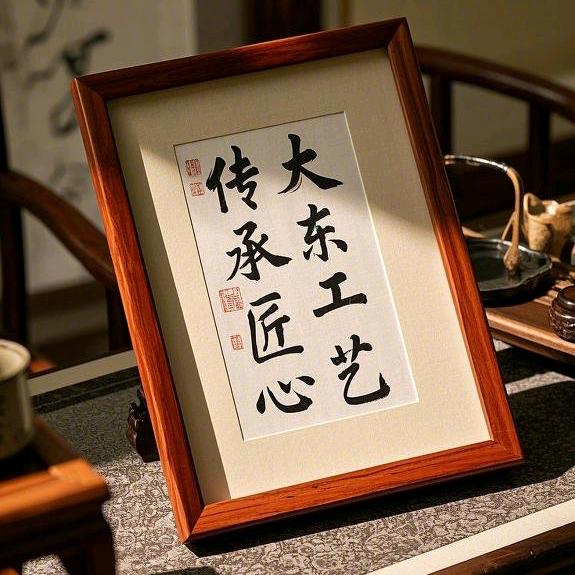 大东工艺
传承匠心